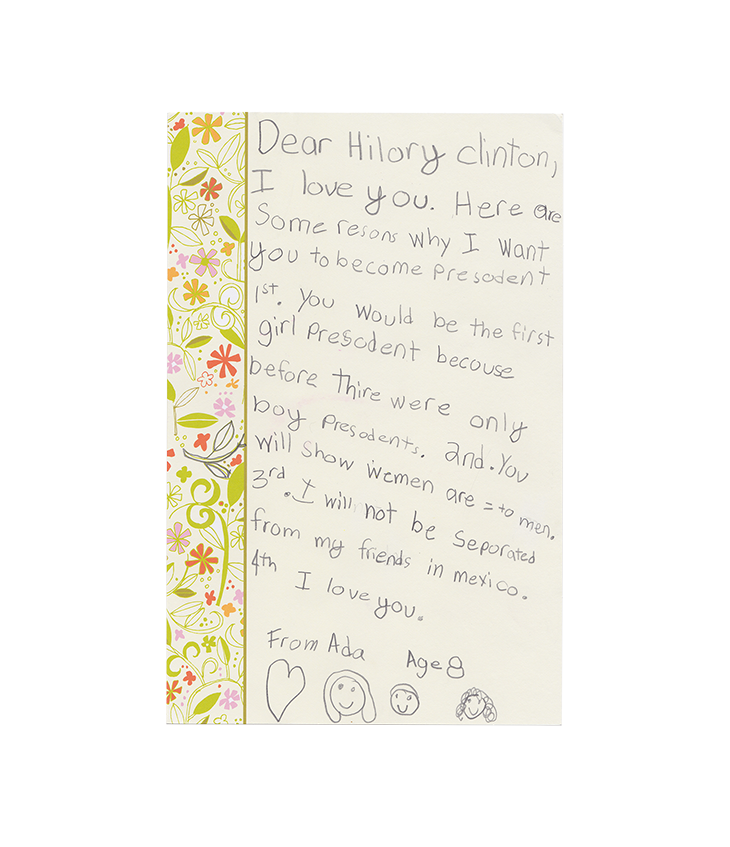 Dear Hilory clinton,
I love you. Here are
Some resons why I want
you to become presodent
1st. you would be the first
girl presodent becouse
before thire were only
boy presodents. 2nd. you
will show women are = to men.
3rd. I will not be seporated
from my friends in mexico.
4th I love you.
From Ada Age 8